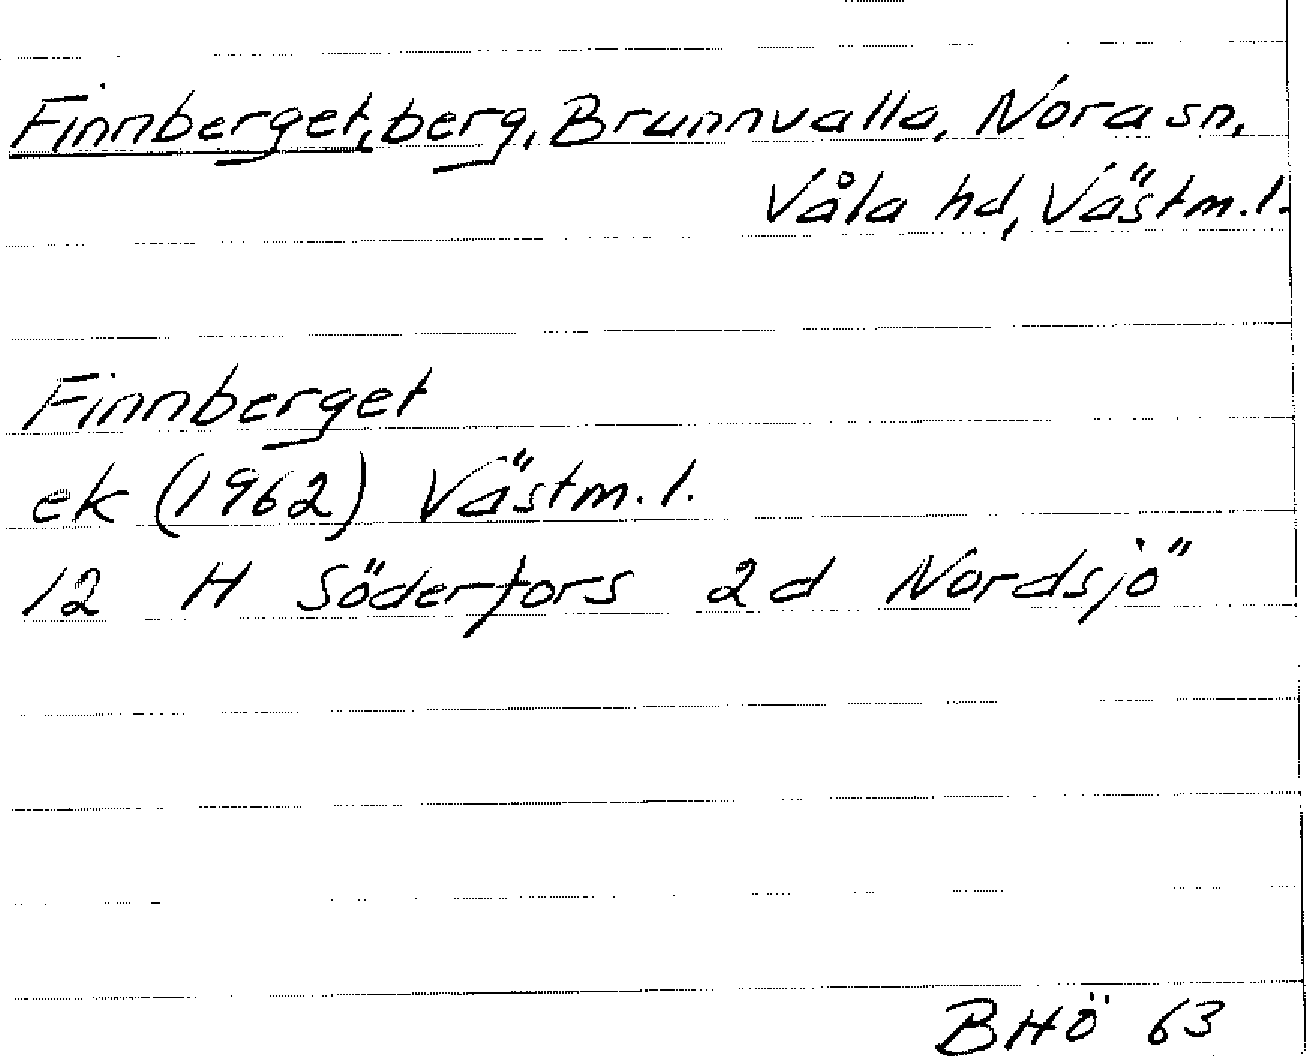 Finnberget, berg, Brunnvalla, Nora sn,
Våla hd, Västm. l.
Finnberget
ek (1962) Västm. l.
12 H Söderfors 2d Nordsjö
BHÖ 63